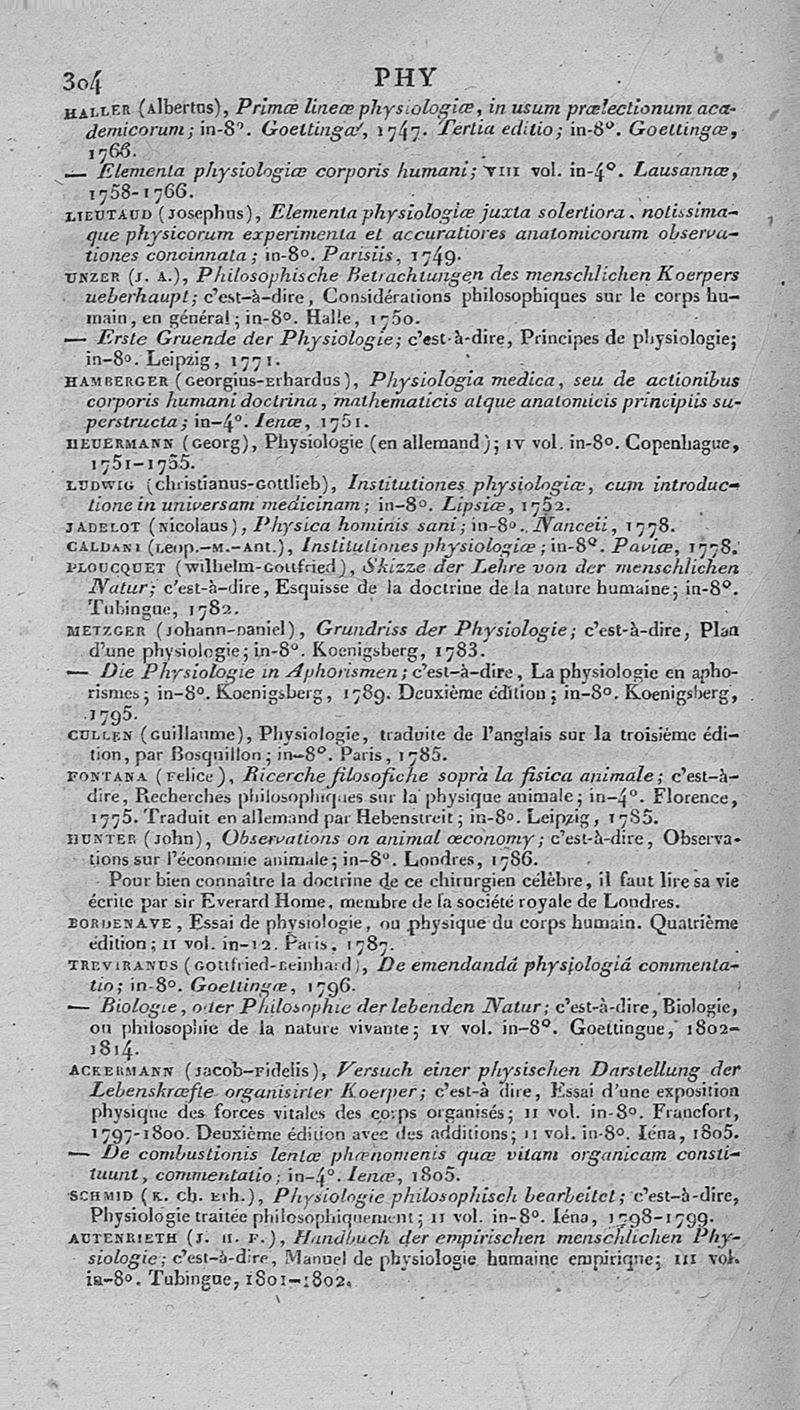 304 PHY
HALLER (Albertus), Primæ lineæ physiologiæ, in usum prælectionum aca-
demicorum; in-8°. Goettingæ, 1747. Tertia editio; in-8°. Goettingæ,
1766.
— Elementa physiologiæ corporis humani; VIII vol. in-4°. Lausannæ,
1758-1766.
LIEUTAUD (Josephus), Elementa physiologiæ juxta solertiora, notissima-
que physicorum experimenta et accuratiores anatomicorum observa-
tiones concinnata; in-8°. Parisiis, 1749.
UNZER (J. A.), Philosophische Betrachtungen des menschlichen Koerpers
ueberhaupt; c'est-à-dire, Considérations philosophiques sur le corps hu-
main, en général; in-8°. Halle, 1750.
— Erste Gruende der Physiologie; c'est-à-dire, Principes de physiologie;
in-8°. Leipzig, 1771.
HAMBERGER (Georgius-Erhardus), Physiologia medica, seu de actionibus
corporis humani doctrina, mathematicis atque anatomicis principiis su-
perstructa; in-4°. Ienæ, 1751.
HEUERMANN (Georg), Physiologie (en allemand); IV vol. in-8°. Copenhague,
1751-1755.
LUDWIG (christianus-Gottlieb), Institutiones physiologiæ, cum introduc-
tione in universam medicinam; in-8°. Lipsiæ, 1752.
JADELOT (Nicolaus), Physica hominis sani; in-8°. Nanceii, 1778.
CALDANI (Leop.-M.-Ant.), Institutiones physiologiæ; in-8°. Paviæ, 1778.
PLOUCQUET (wilhelm-Gottfried), Skizze der Lehre von der menschlichen
Natur; c'est-à-dire, Esquisse de la doctrine de la nature humaine; in-8°.
Tubingue, 1782.
METZGER (Johann-Daniel), Grundriss der Physiologie; c'est-à-dire, Plan
d'une physiologie; in-8°. Koenigsberg, 1783.
— Die Physiologie in Aphorismen; c'est-à-dire, La physiologie en apho-
rismes; in-8°. Koenigsberg, 1789. Deuxième édition; in-8°. Koenigsberg,
1795.
CULLEN (Guillaume), Physiologie, traduite de l'anglais sur la troisième édi-
tion, par Bosquillon; in-8°. Paris, 1785.
FONTANA (Felice), Ricerche filosofiche sopra la fisica animale; c'est-à-
dire, Recherches philosophiques sur la physique animale; in-4°. Florence,
1775. Traduit en allemand par Hebenstreit; in-8°. Leipzig, 1785.
HUNTER (John), Observations on animal œconomy; c'est-à-dire, Observa-
tions sur l'économie animale; in-8°. Londres, 1786.
Pour bien connaître la doctrine de ce chirurgien célèbre, il faut lire sa vie
écrite par sir Everard Home, membre de la société royale de Londres.
BORDENAVE, Essai de physiologie, ou physique du corps humain. Quatrième
édition; II vol. in-12. Paris, 1787.
TREVIRANUS (Gottfried-Reinhard), De emendandâ physiologiâ commenta-
tio; in-8°. Goettingæ, 1796.
— Biologie, oder Philosophie der lebenden Natur; c'est-à-dire, Biologie,
ou philosophie de la nature vivante; IV vol. in-8°. Goettingue, 1802-
1814.
ACKERMANN (Jacob-Fidelis), Versuch einer physischen Darstellung der
Lebenskræfte organisirter Koerper; c'est-à dire, Essai d'une exposition
physique des forces vitales des corps organisés; II vol. in-8°. Francfort,
1797-1800. Deuxième édition avec des additions; II vol. in-8°. Iéna, 1805.
— De combustionis lentæ phœnomenis quæ vitam organicam consti-
tuunt, commentatio; in-4°. Ienæ, 1805.
SCHMID (K. Ch. Erh.), Physiologie philosophisch bearbeitet; c'est-à-dire,
Physiologie traitée philosophiquement; II vol. in-8°. Iéna, 1798-1799.
AUTENRIETH (J. H. F.), Handbuch der empirischen menschlichen Phy-
siologie; c'est-à-dire, Manuel de physiologie humaine empirique; III vol.
in-8°. Tubingue, 1801-1802.